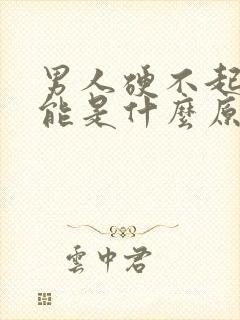 男人硬不起
能是什麼原
雲中君